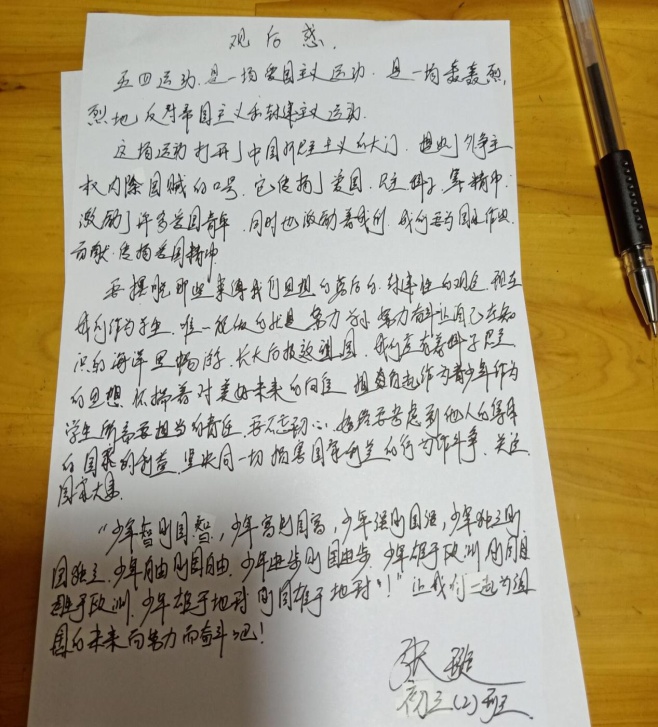 观后感.
五四运动.是一场爱国主义运动.是一场轰轰烈.
烈地反对帝国主义和封建主义运动.
这场运动打开了中国新民主主义的大门.提出了外争主
权内除国贼的口号.它传播了爱国.民主科学等精中.
激励了许多爱国青年.同时也激励着我们.我们要为国家作出
贡献.传播爱国精中.
要摆脱那些束缚我们思想的落后的.封建性的观念.现在
我们作为学生.唯一能做的就是努力学习.努力奋斗让自己在知
识的海洋里畅游.长大后报效祖国.我们应有着科学民主
的思想.怀揣着对美好未来的向往.担负起作为青少年作为
学生所需要担当的责任.要不忘初心.始终要考虑到他人的集体
的国家的利益.坚决同一切损害国家利益的行为作斗争.关注
国家大事.
“少年智则国智,少年富则国富,少年强则国强,少年独立则
国独立.少年自由则国自由.少年进步则国进步.少年雄于欧洲则国
雄于欧洲.少年雄于地球则国雄于地球”!”让我们一起为祖
国的未来而努力而奋斗吧!
张
初三(2)班